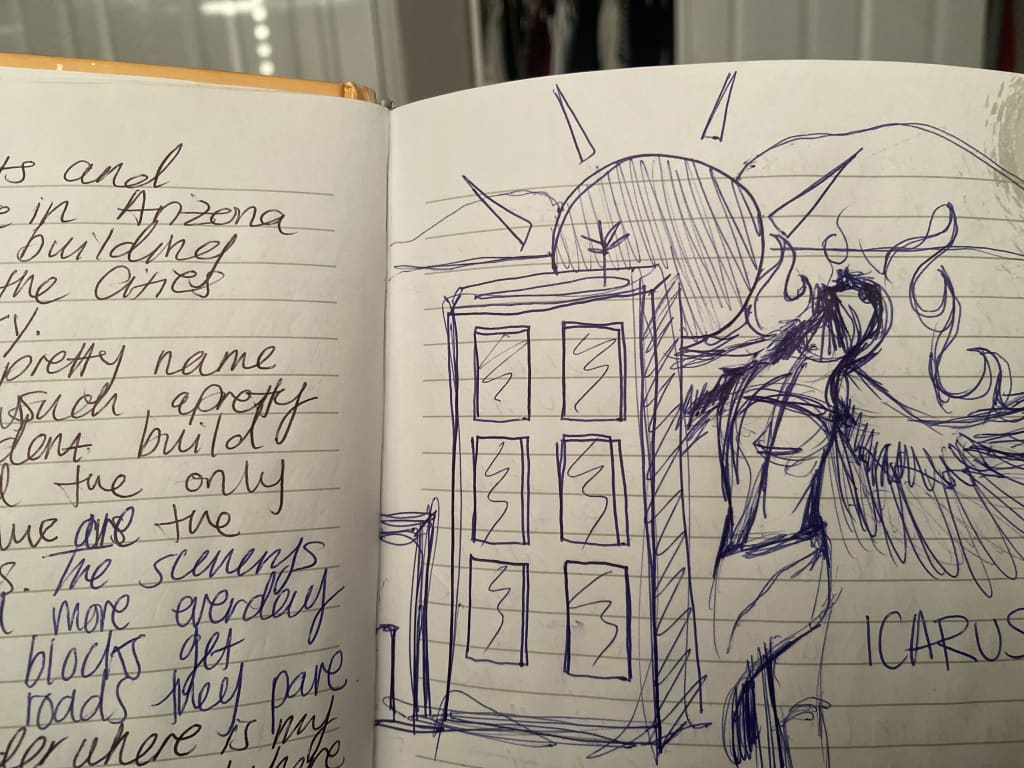 ts and
e in Arizona
building
the Cities
ry.
pretty name
such a pretty
dent build
l the only
we are the
s. The scenerys
l more everday
blocks get
roads they pave.
der where is my
where
ICARUS